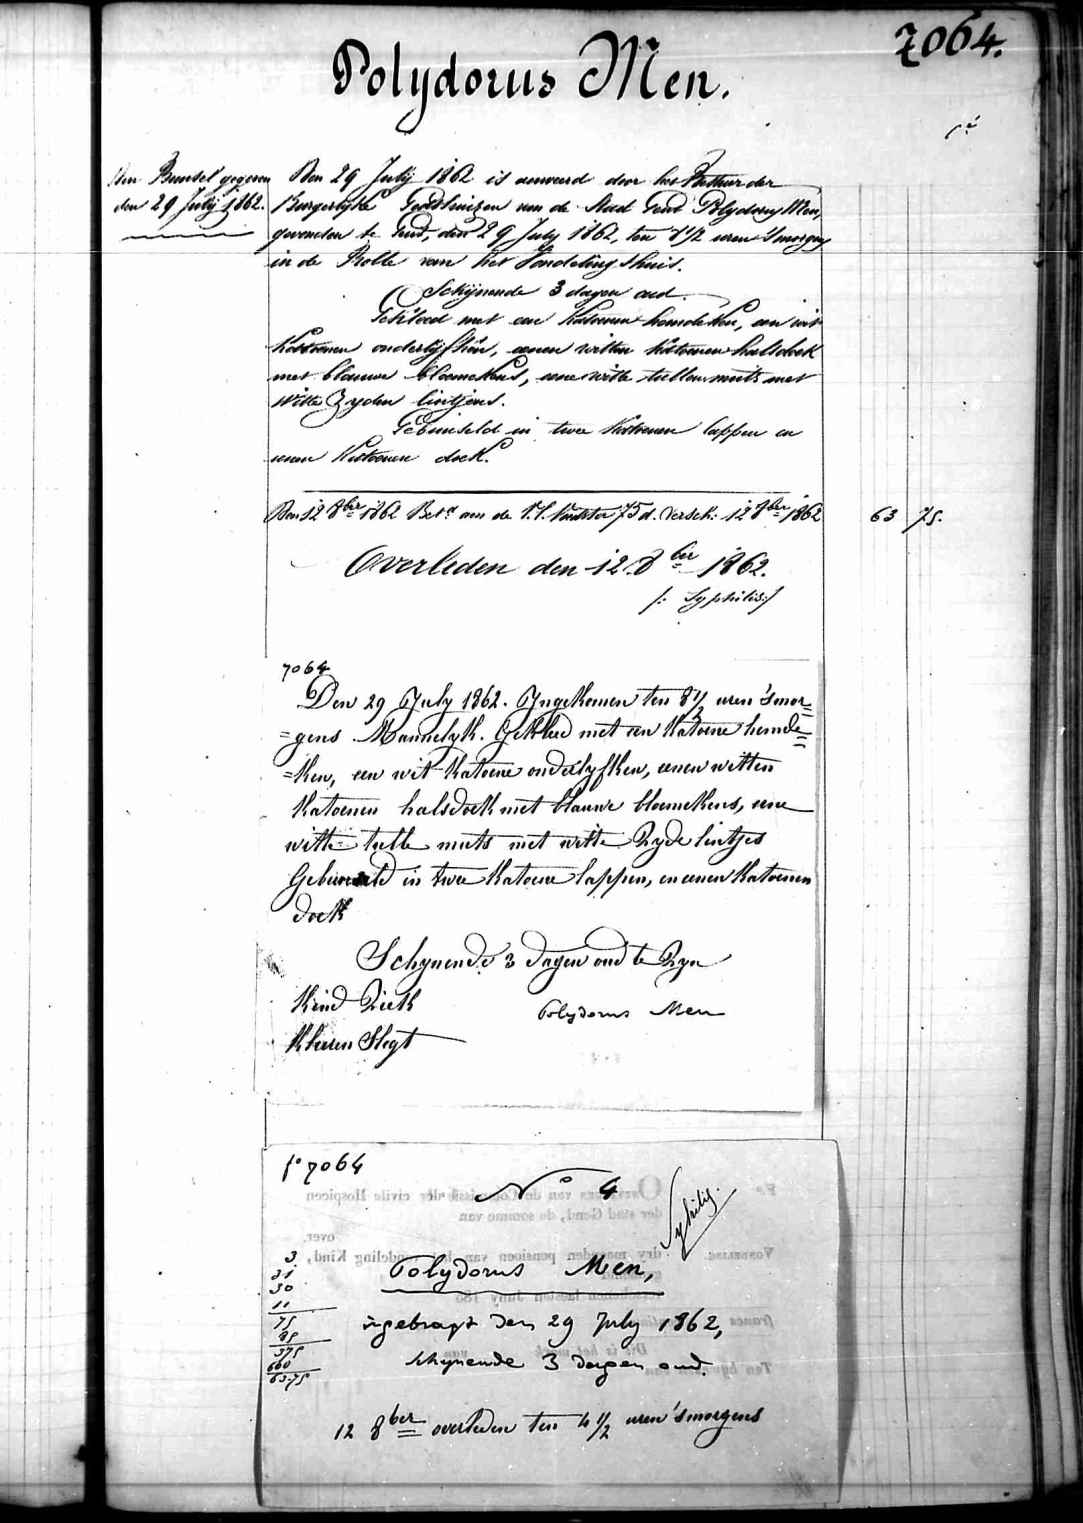 7064.
Polydorus Men.
Den Bundel gegeven
den 29 July 1862.
Den 29 July 1862 is aenveerd door het Bestuur der
Burgerlyke Godshuizen van de Stad Gend Polydorus Men,
gevonden te Gend, den 29 July 1862, ten 8 1/2 uren 'smorgens
in de Rolle van het Vondelingshuis.
Schijnende 3 dagen oud.
Gekleed met een Katoenen hemdeken, een wit
Katoenen onderlyfken, eenen witten Katoenen halsdoek
met blauwe bloemekens, eene witte tullen muts met
witte Zyden lintjens.
Gebuiseld in twee Katoenen lappen en
eenen Katoenen doek.
Den 12 8ber 1862 Bet. aen de 75 d. versch. 12 8ber 1862
63 75.
Overleden den 12 8ber 1862.
/: Syphilis :/
7064
Den 29 July 1862. Ingekomen ten 8 1/2 uren 'smor=
=gens Mannelyk. Gekleed met een Katoene hemde=
=ken, een wit Katoene onderlyfken, eenen witten
Katoenen halsdoek met blauwe bloemekens, eene
witte tulle muts met witte Zyde lintjes
in twee Katoene lappen, en eenen Katoenen
doek
Schynende 3 dagen oud te Zyn
Kind Ziek
Polydorus Men
Kleeren Slegt
f° 7064
N° 4
Syphilis.
3
31
30
11
75
85
375
600
63.75
Polydorus Men,
ingebragt den 29 July 1862,
schynende 3 dagen oud.
12 8ber overleden ten 4 1/2 uren 'smorgens